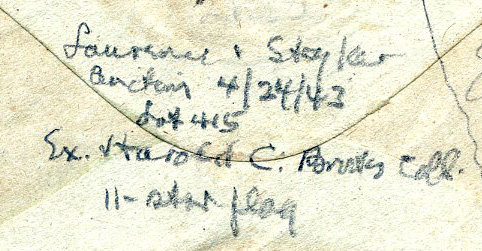 Laurence & Stryker
Auction 4/24/43
Lot 415
Ex. Harold C. Brooks Coll.
11-star flag